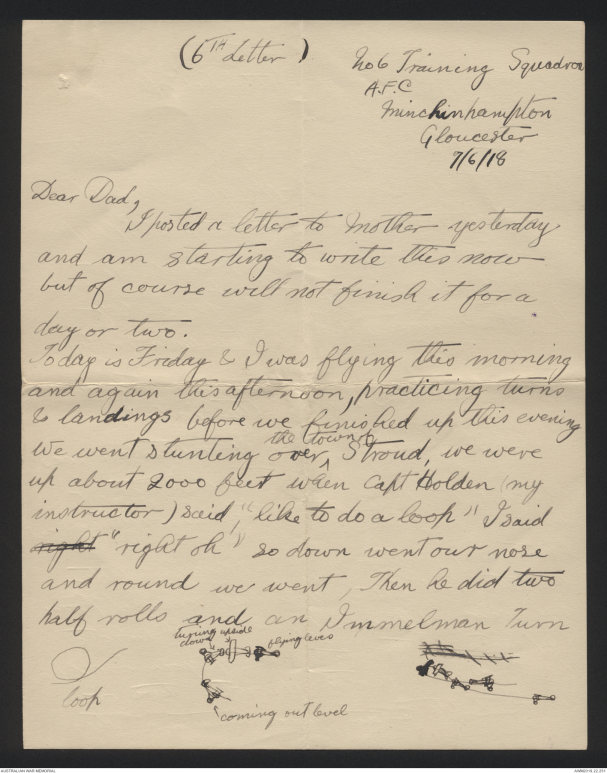 (6TH Letter)
No 6 Training Squadron
A.F.C
Minchinhampton
Gloucester
7/6/18
Dear Dad,
I posted a letter to Mother yesterday
and am starting to write this now
but of course will not finish it for a
day or two.
Today is Friday & I was flying this morning
and again this afternoon, practicing turns
& landings before we finished up this evening
we went stunting over, the town of Stroud, we were
up about 2000 feet when Capt Holden (my
instructor) said, "like to do a loop" I said
right "right oh" so down went our nose
and round we went, Then he did two
half rolls and an Immelman Turn
turning upside
down
flying level
loop
coming out level
AUSTRALIAN WAR MEMORIAL